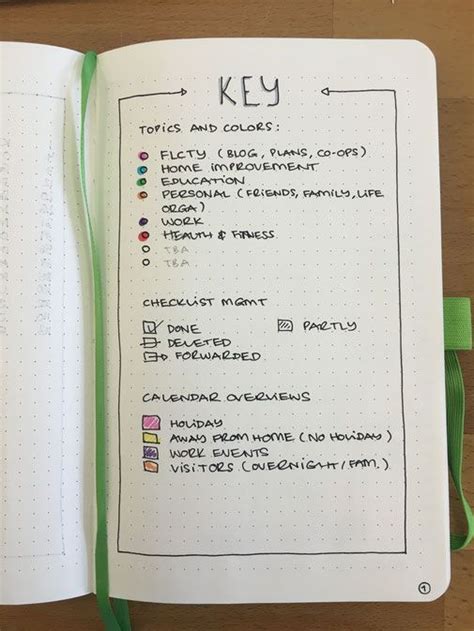 KEY
TOPICS AND COLORS:
FLCTY (BLOG, PLANS, CO-OPS)
HOME IMPROVEMENT
EDUCATION
PERSONAL (FRIENDS, FAMILY, LIFE
ORGA)
WORK
HEALTH & FITNESS
TBA
TBA
CHECKLIST MGMT
DONE PARTLY
DELETED
FORWARDED
CALENDAR OVERVIEWS
HOLIDAY
AWAY FROM HOME (NO HOLIDAY)
WORK EVENTS
VISITORS (OVERNIGHT/FAM.)
1